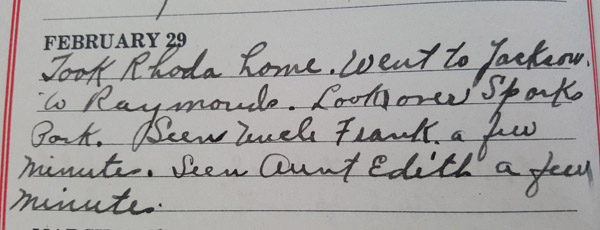 FEBRUARY 29
Took Rhoda home. Went to Jackson.
to Raymonds. Look over Sparks
Park. Seen Uncle Frank a few
minutes. Seen Aunt Edith a few
minutes.